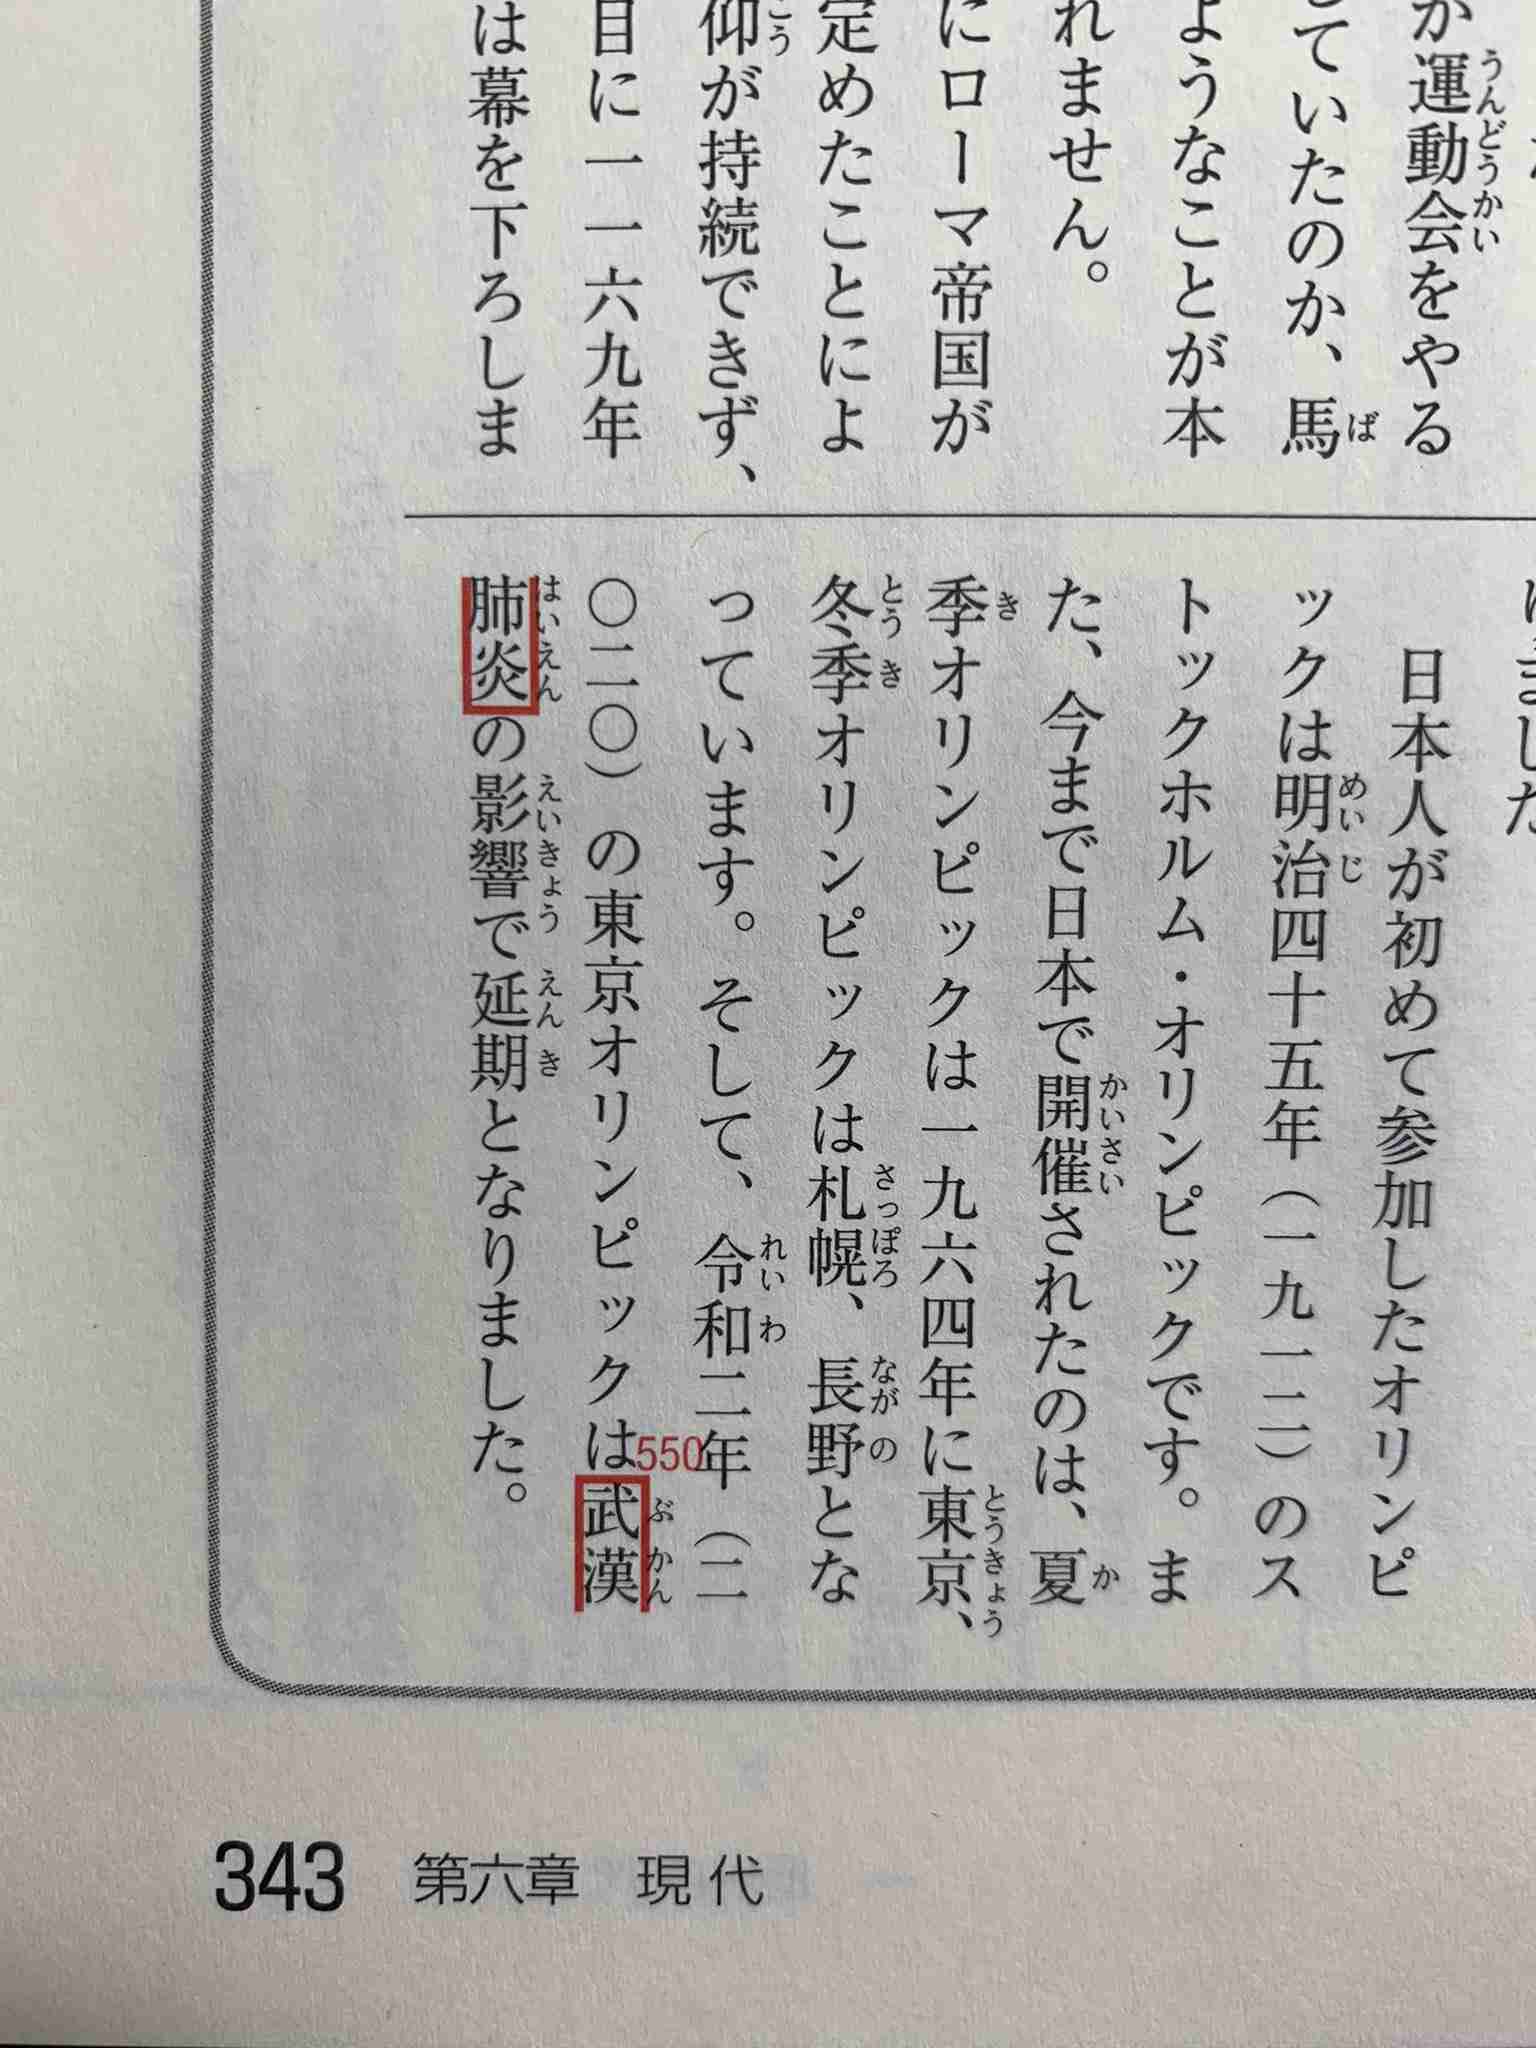 か運動会をやる
ていたのか、馬
ようなことが本
れません。
にローマ帝国が
定めたことによ
仰が持続できず、
目に一一六九年
は幕を下ろしま
けました
日本人が初めて参加したオリンピ
ックは明治四十五年（一九一二）のス
トックホルム・オリンピックです。ま
た、今まで日本で開催されたのは、夏
季オリンピックは一九六四年に東京、
冬季オリンピックは札幌、長野とな
っています。そして、令和二年（二
〇二〇）の東京オリンピックは武漢
550
肺炎の影響で延期となりました。
343 第六章 現代